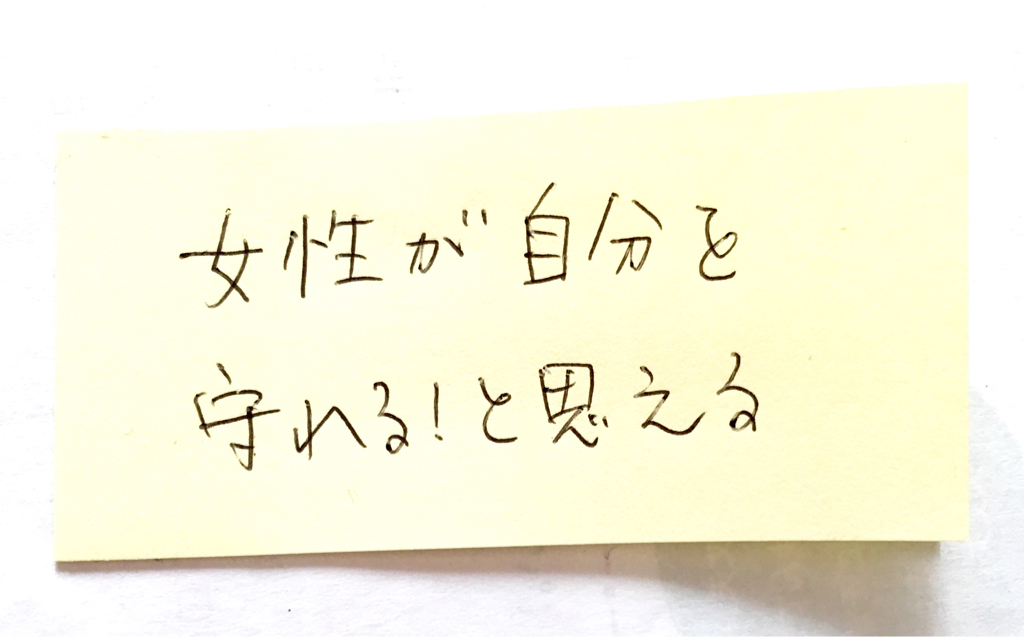 女性が自分を
守れる!と思える